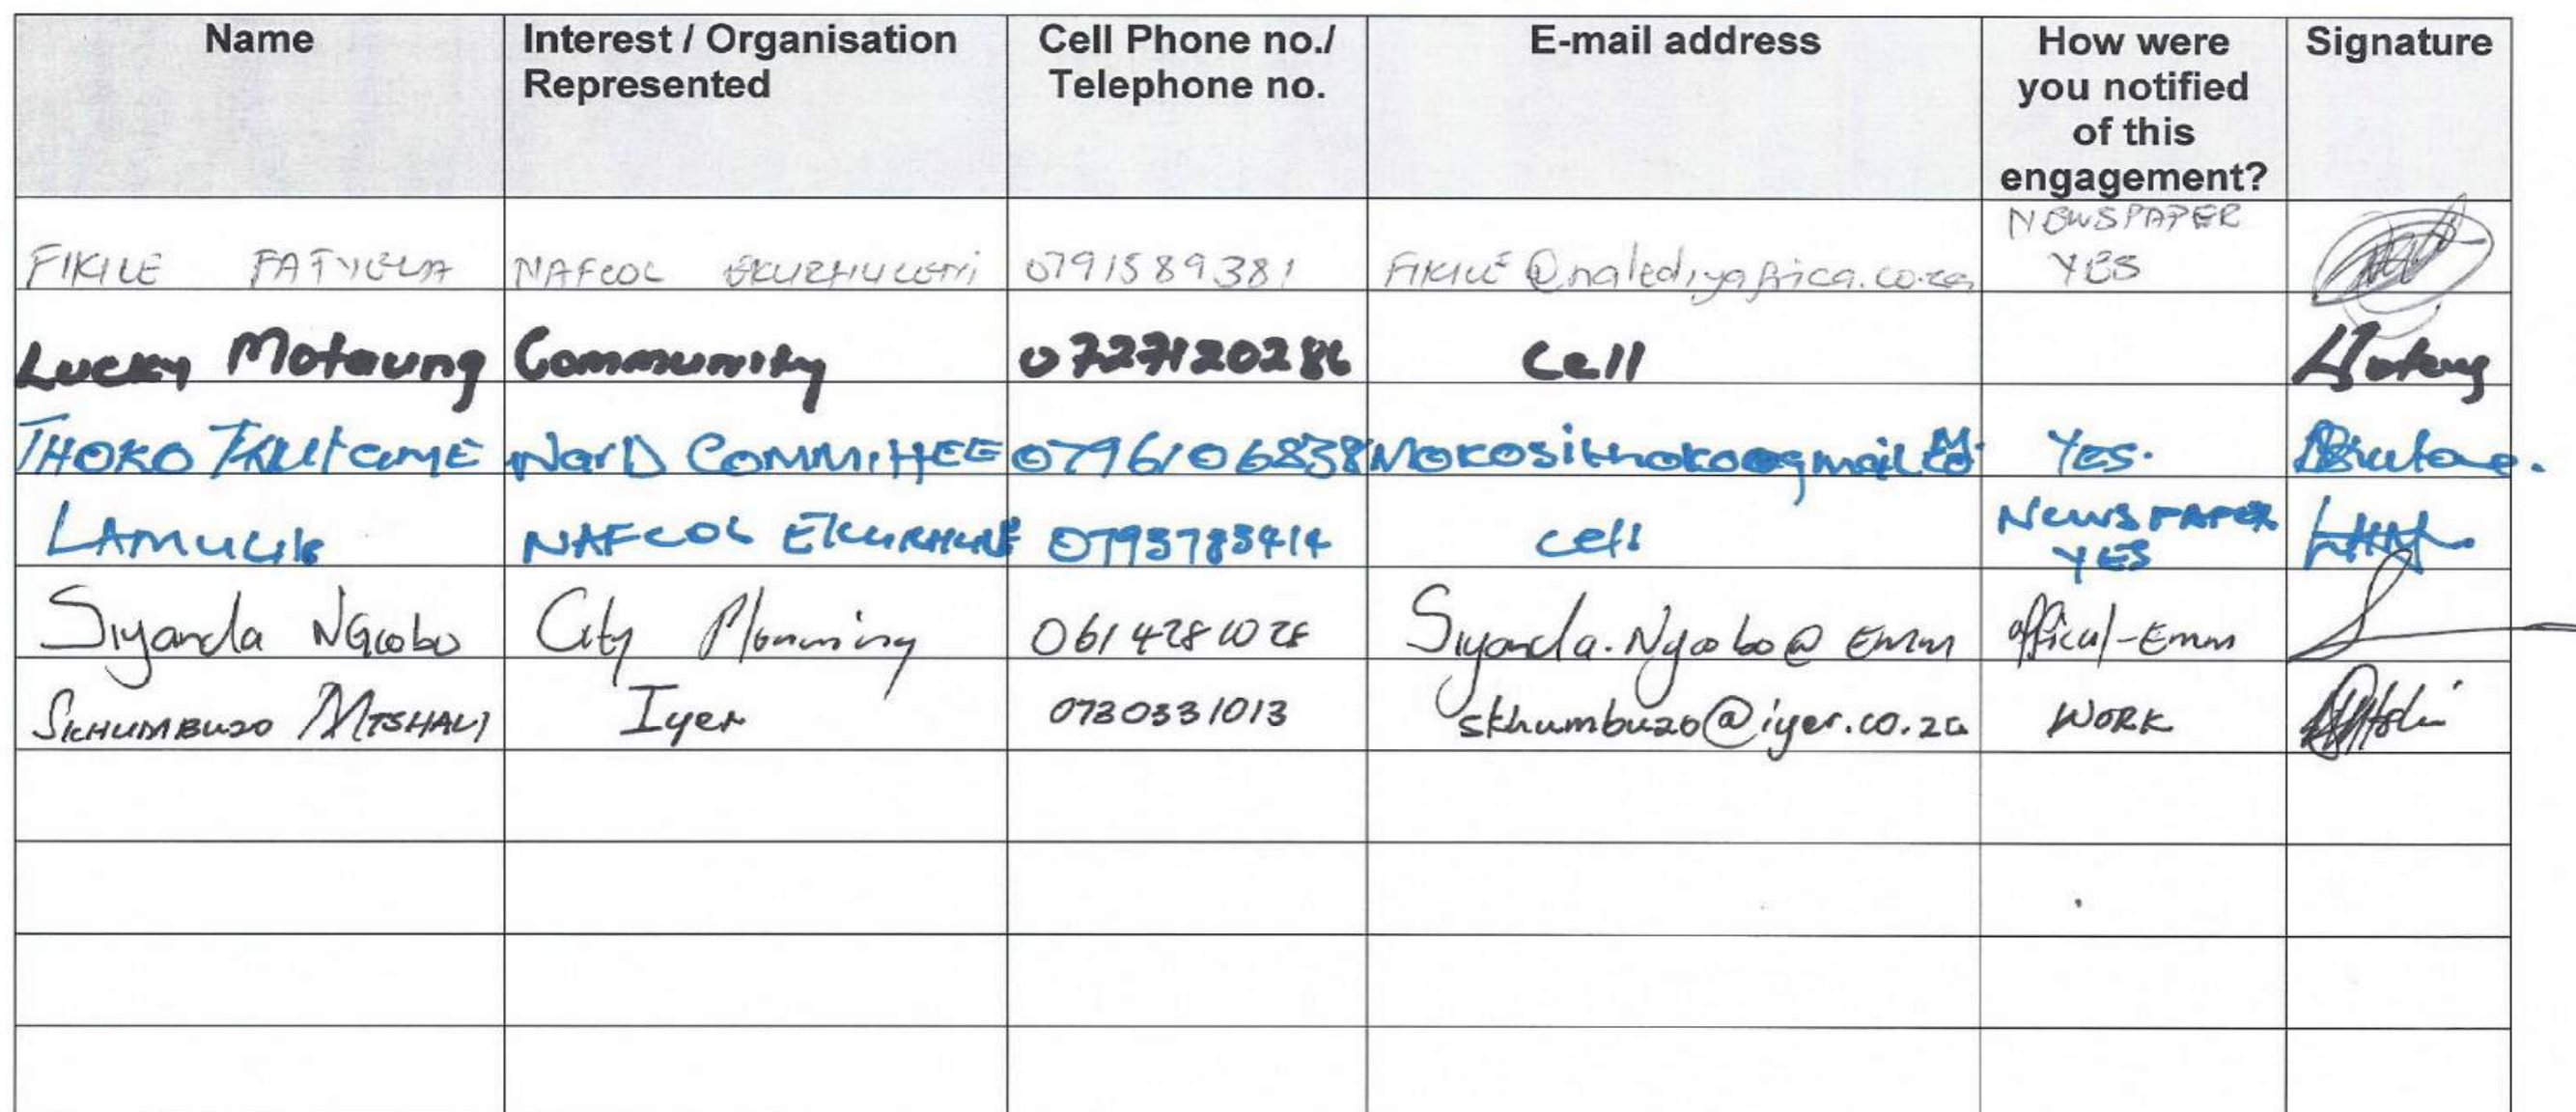 Name Interest / Organisation Represented Cell Phone no./ Telephone no. E-mail address How were you notified of this engagement? Signature
FIKILE NAFCOL EKURHULENI 0791589381 FIKILE@nalediyafrica.co.za NEWSPAPER YES
Lucky Motaung Community 0727120286 Cell
THOKO WARD COMMITTEE 0796106838 YES.
NAFCOL 0793783414 cell NEWSPAPER YES
Siyanda NGcobo City Planning Siyanda.Ngcobo@ Emm offical-Emm
SKHUMBUZO MTSHALI Iyer 0730331013 skhumbuzo@iyer.co.za WORK